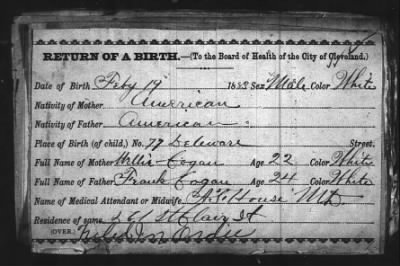 RETURN OF A BIRTH.—(To the Board of Health of the City of Cleveland.)
Date of Birth Feby 19 1883 Sex Male Color White
Nativity of Mother American
Nativity of Father American
Place of Birth (of child,) No. 77 Deleware Street.
Full Name of Mother Millie Cogan Age 22 Color White
Full Name of Father Frank Cogan Age 24 Color White
Name of Medical Attendant or Midwife House
Residence of same 261 St Clair St
(OVER.)